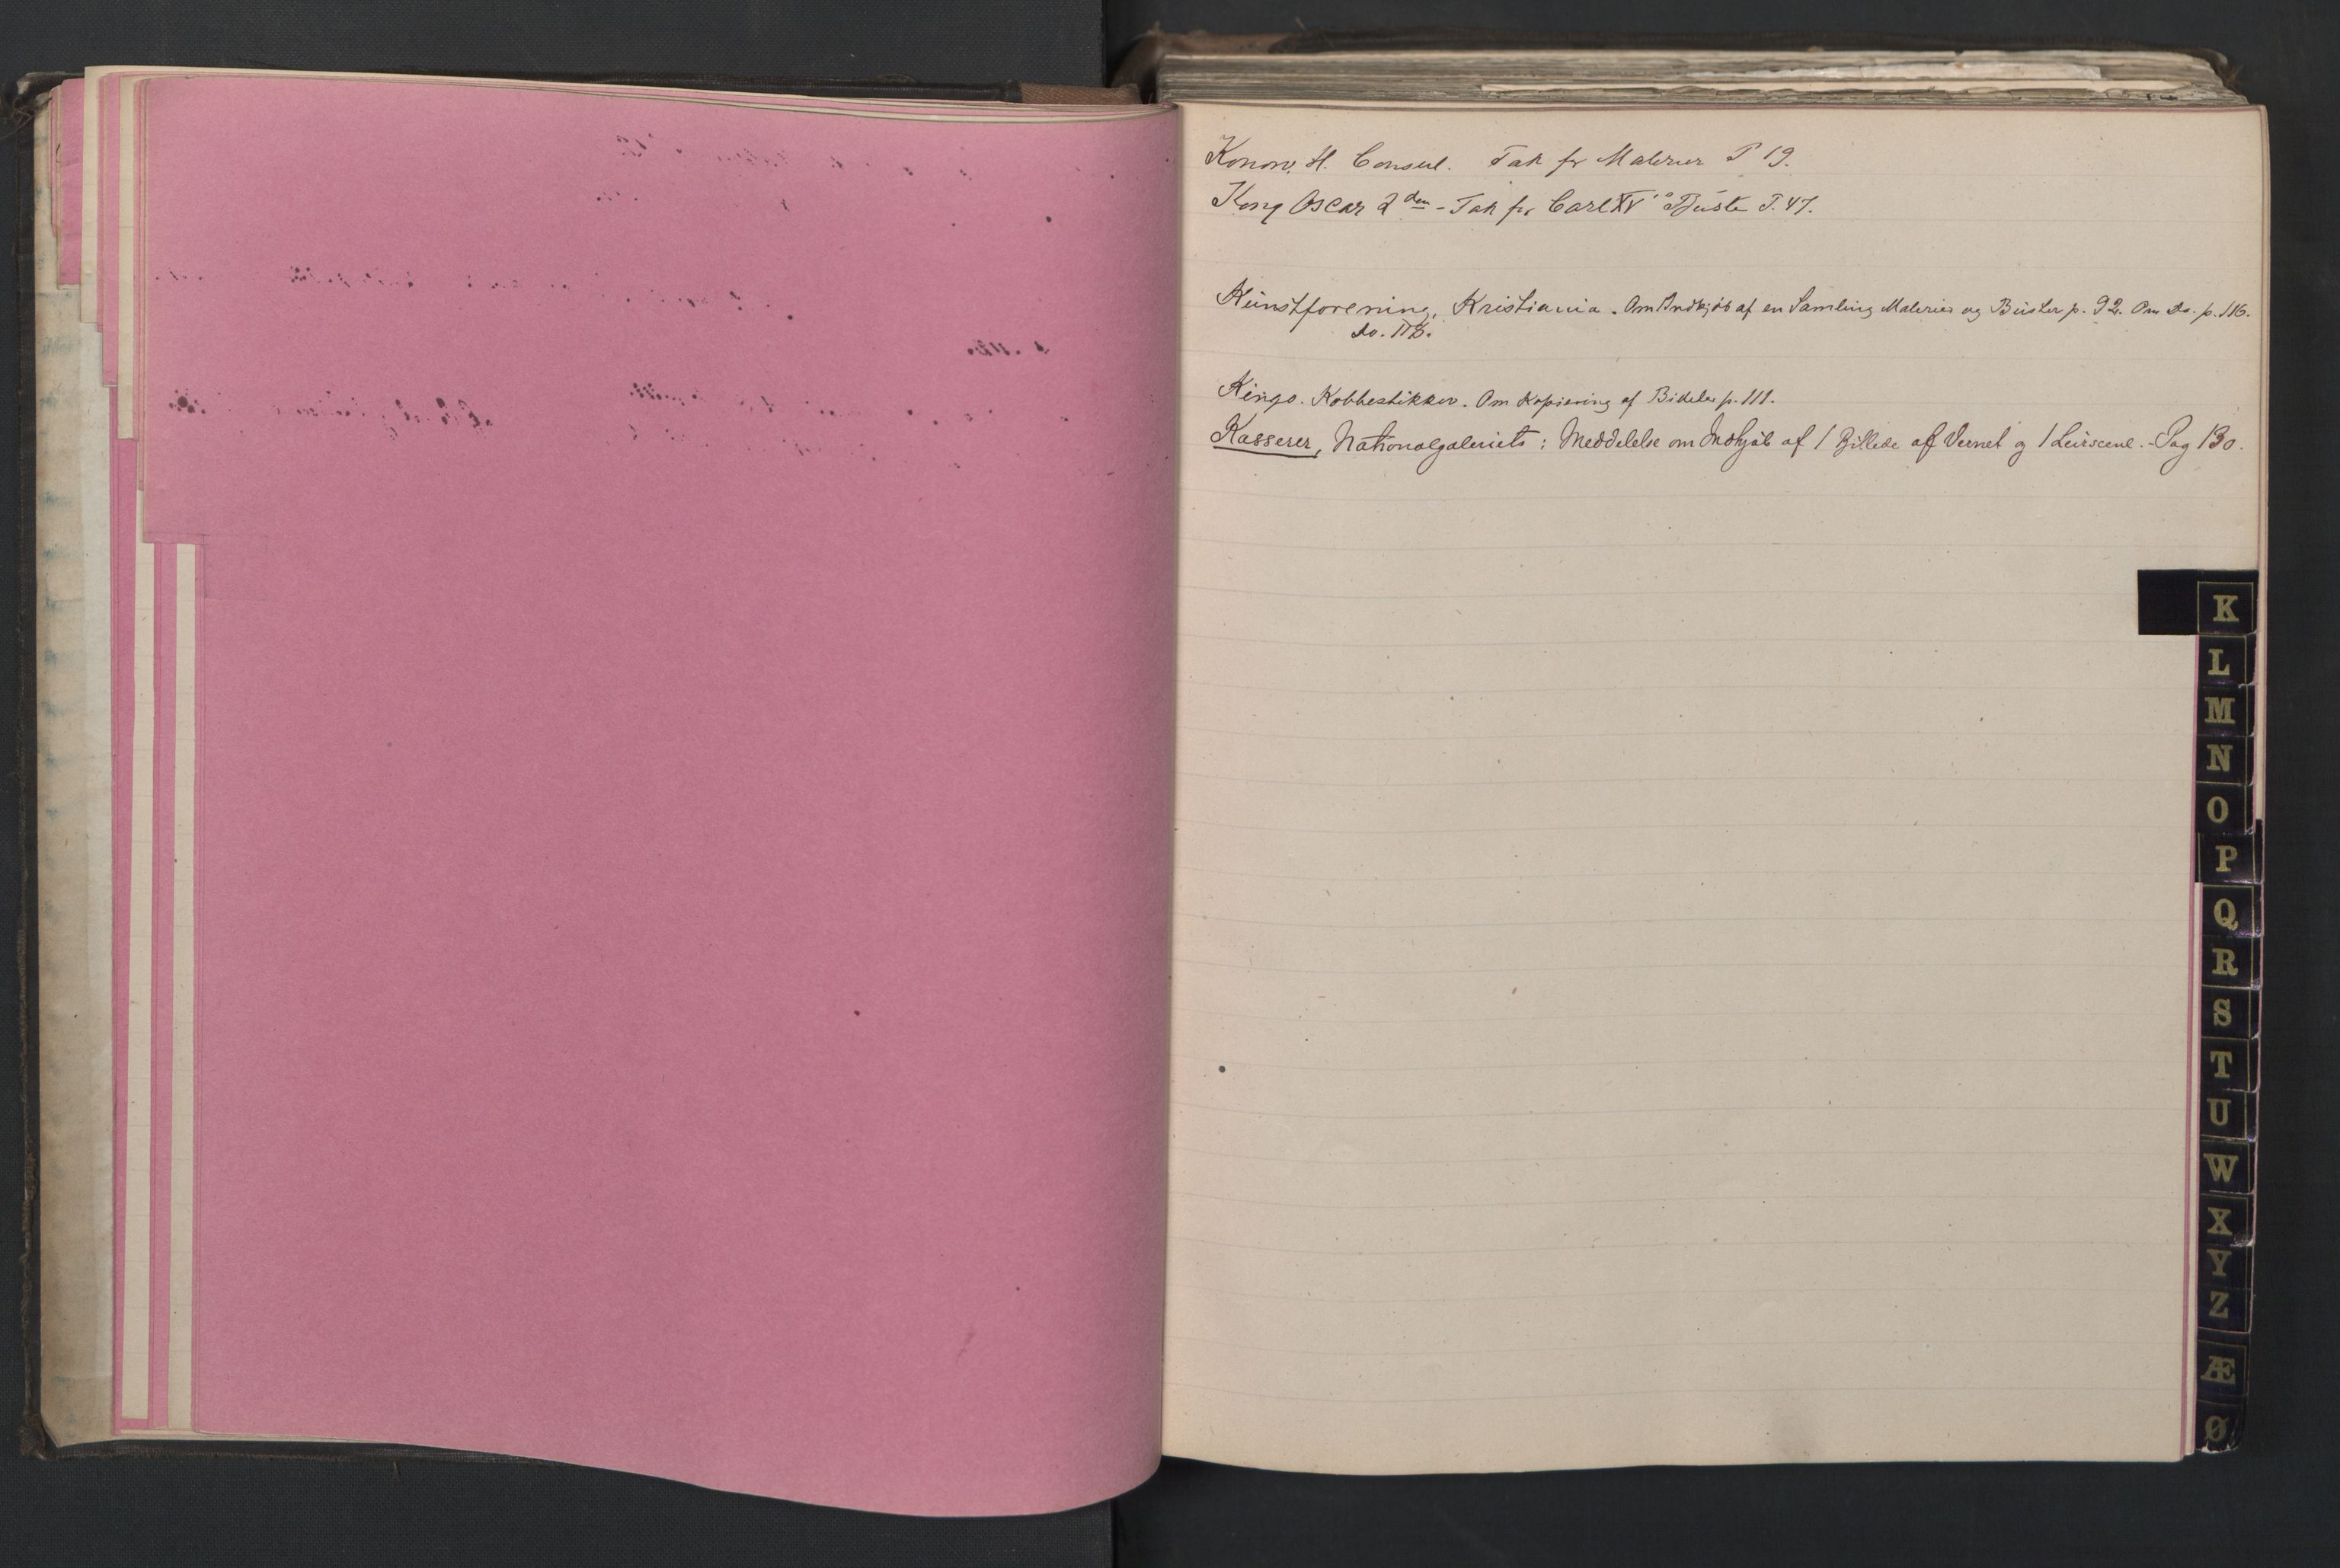 Konow, H. Consul. Tak for Malerier P 19.
Kong Oscar 2den - Tak for Carl XV's Büste P. 47.
Künstforening, Kristiania. Om Indkjöb af en Samling Malerier og Büster p. 92. Om do. p. 116.
do. 118.
Kingo. Kobberstikker. Om Kopiering af Billeder p. 111.
Kasserer, Nationalgaleriets: Meddelelse om Indkjöb af 1 Billede af Vernet og 1 Leirscene. - Pag 130.
K
L
M
N
O
P
Q
R
S
T
U
W
X
Y
Z
Æ
Ø